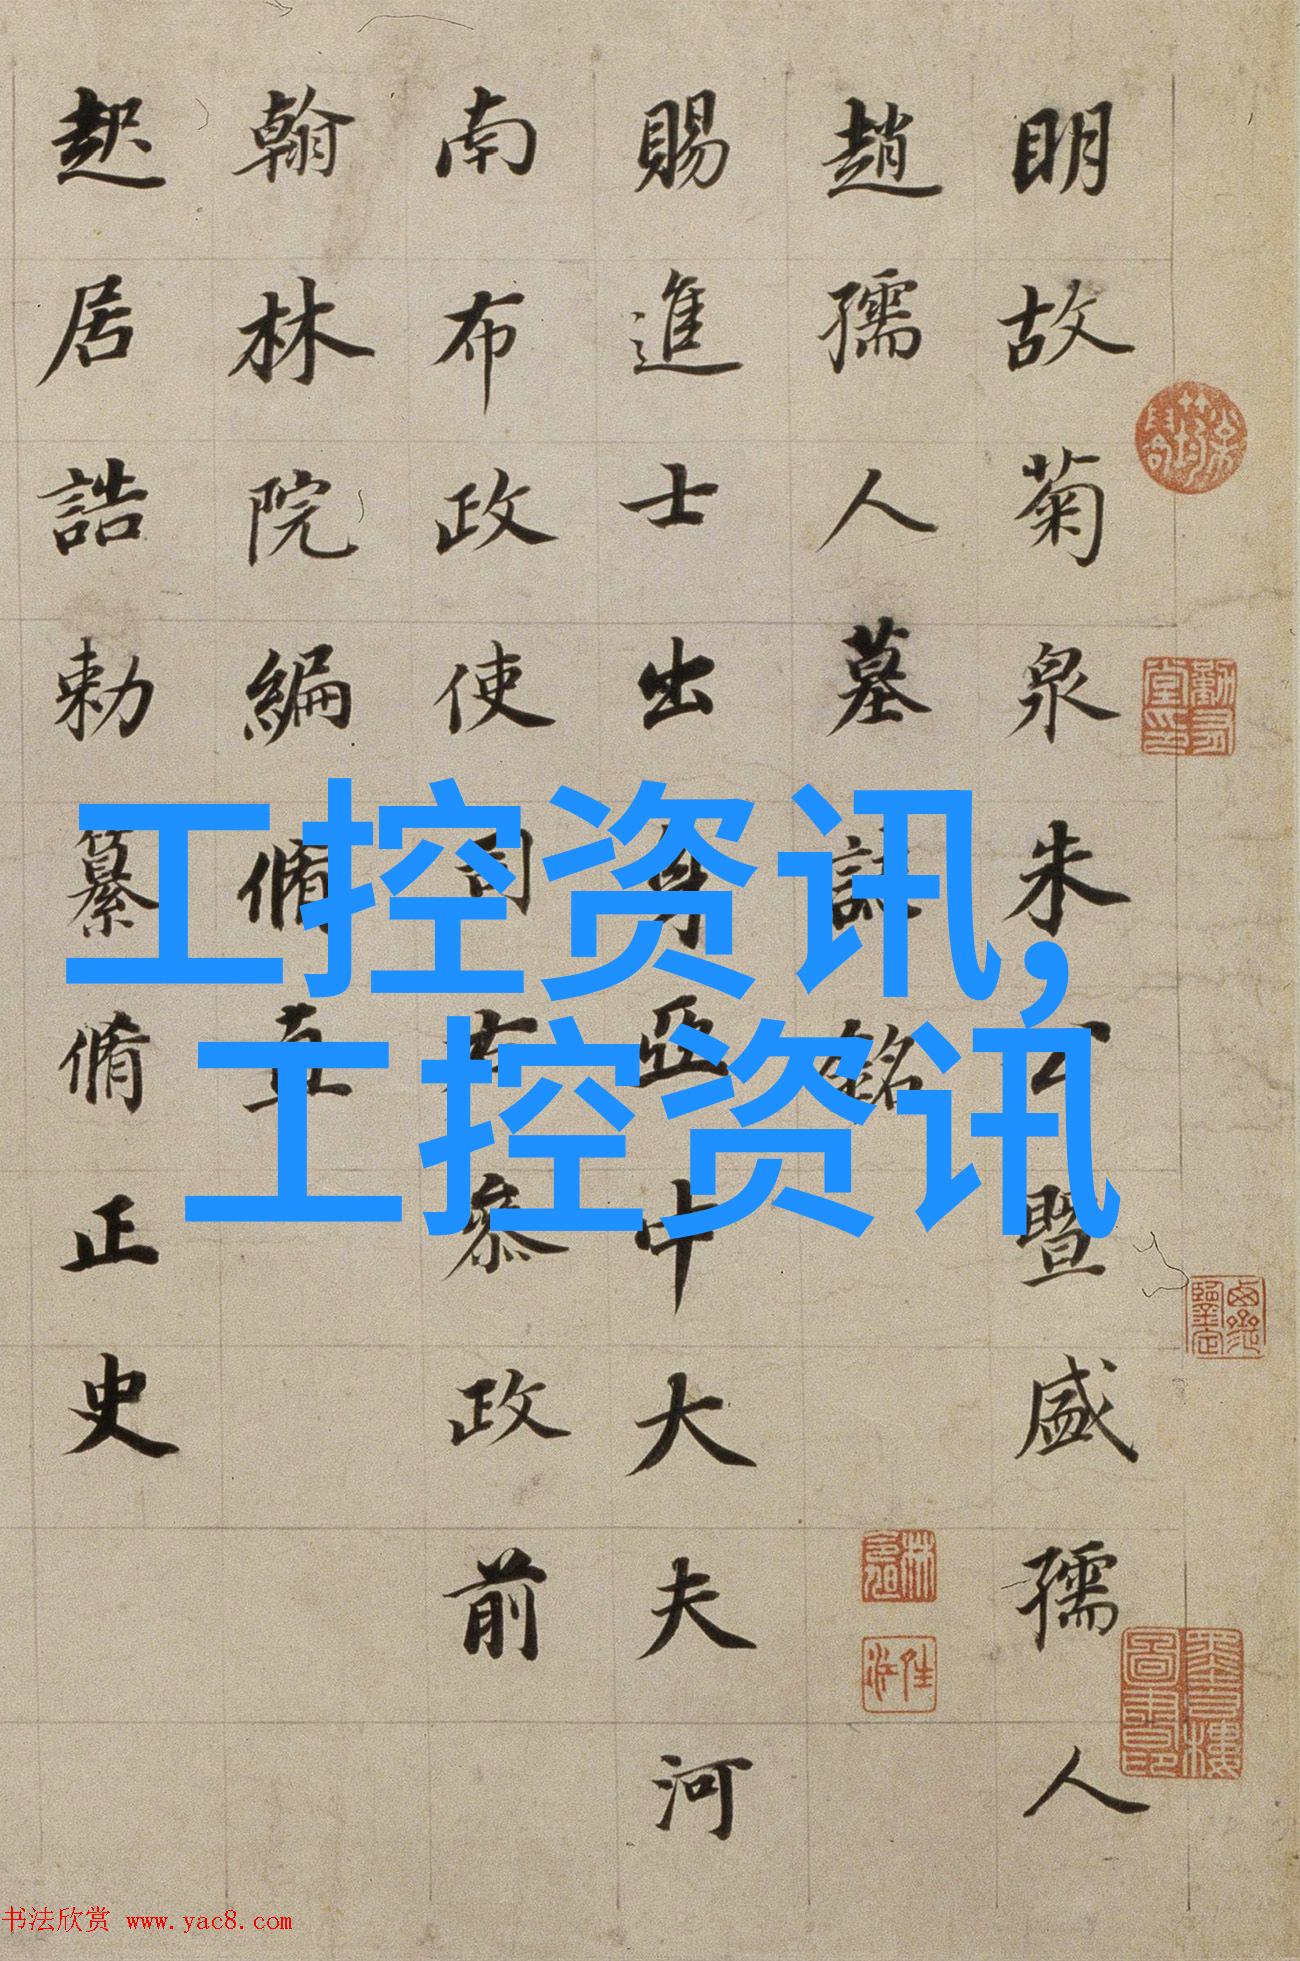 明故菊泉朱公暨盛孺人
趙孺人墓誌銘
賜進士出身亞中大夫河
南布政使司右叅政前
翰林院編脩直
起居誥敕纂脩正史
工控资讯,
工控资讯
书法欣赏 www.yac8.com